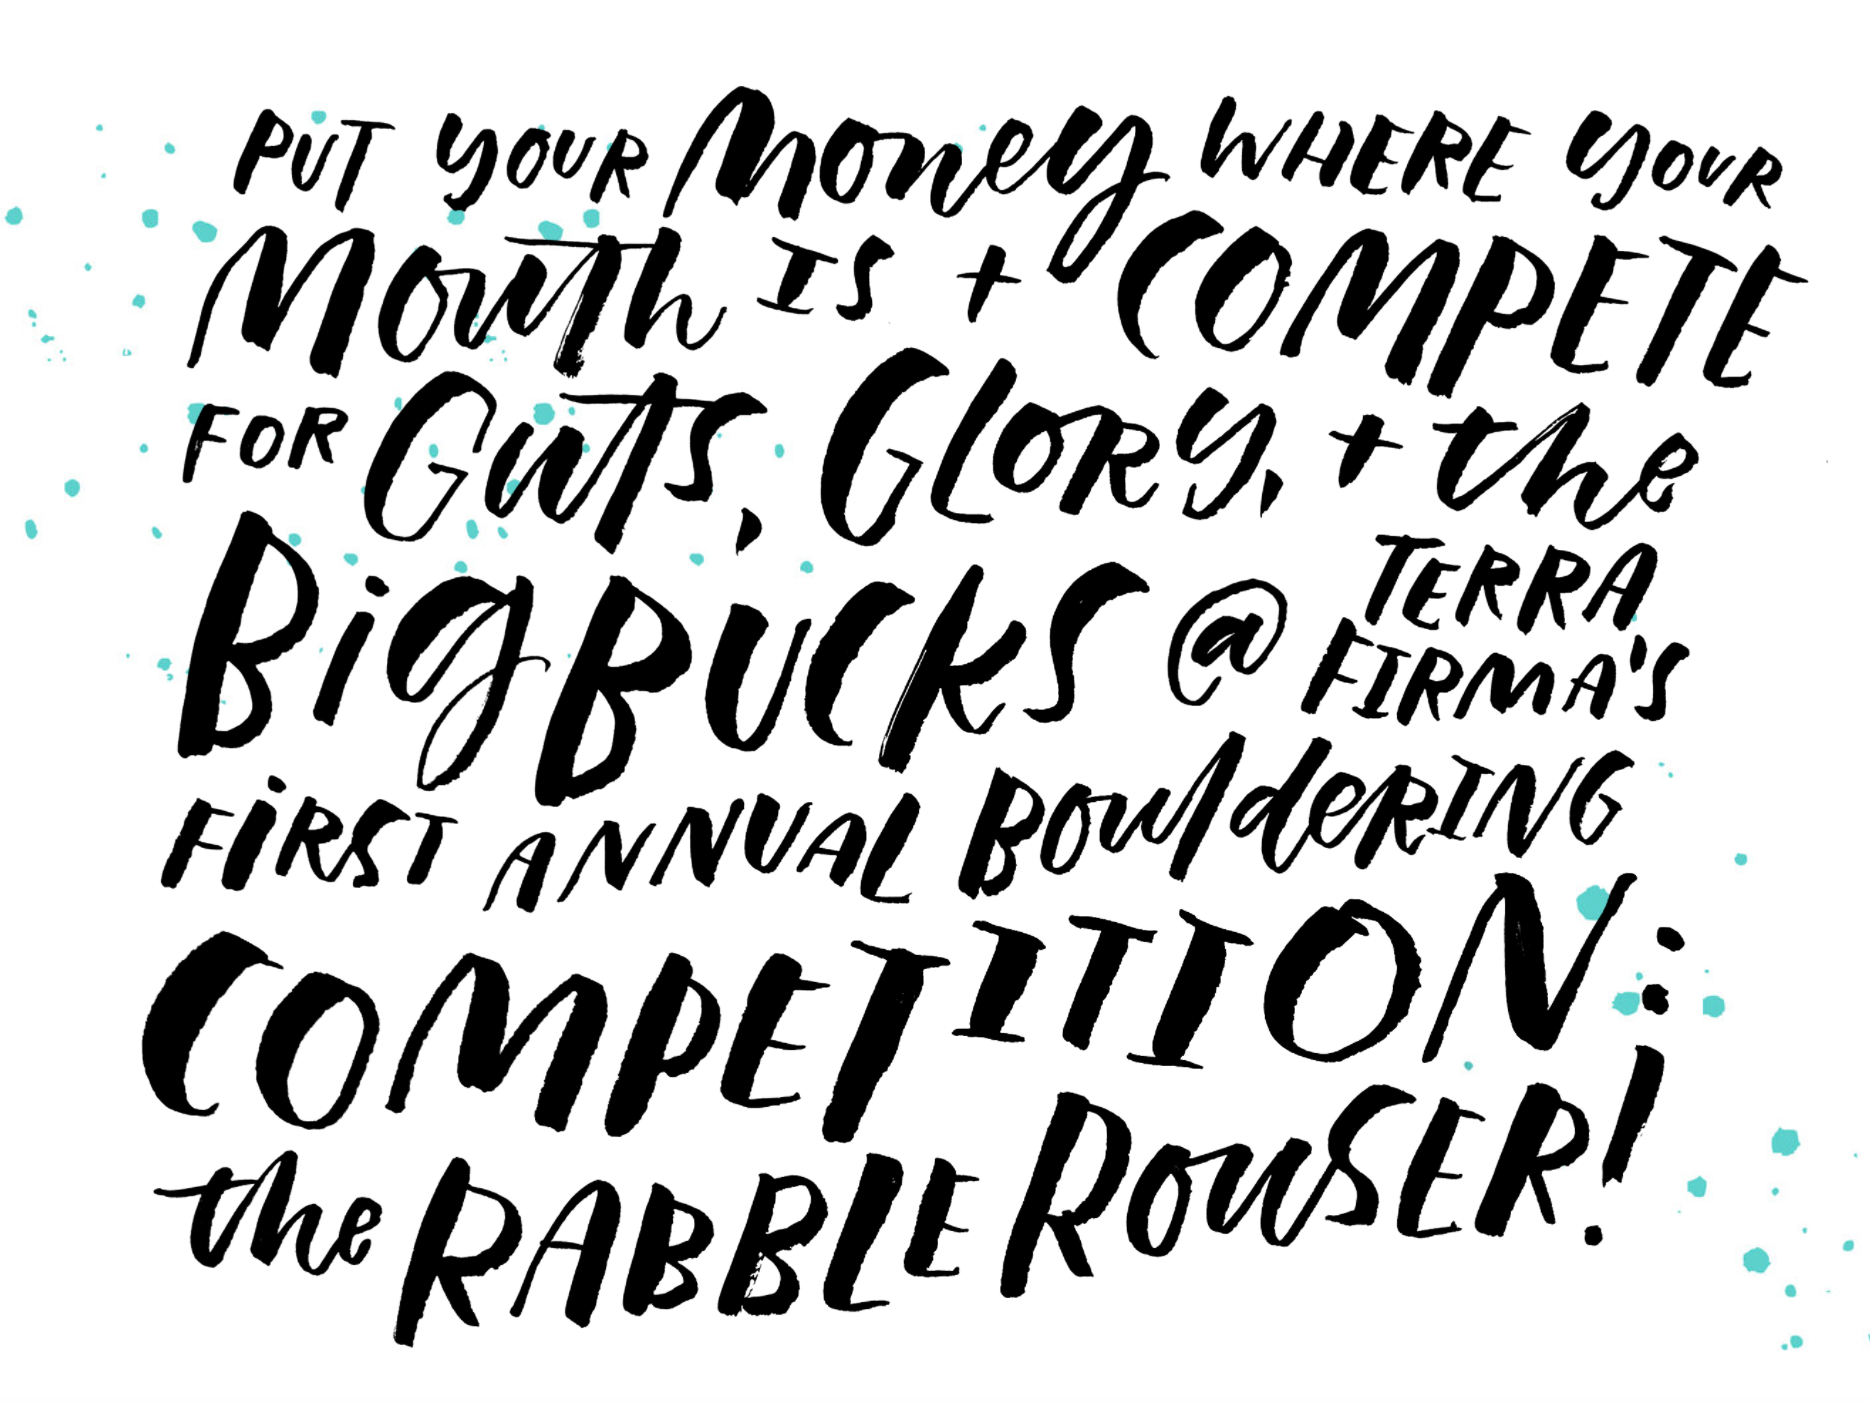 PUT YOUR Money WHERE YOUR
Mouth IS + COMPETE
FOR Guts, GLORY, + the
BigBUCKS @ TERRA
FIRMA'S
FiRST ANNUAL BouldeRING
COMPETITION:
the RABBLE ROUSER!